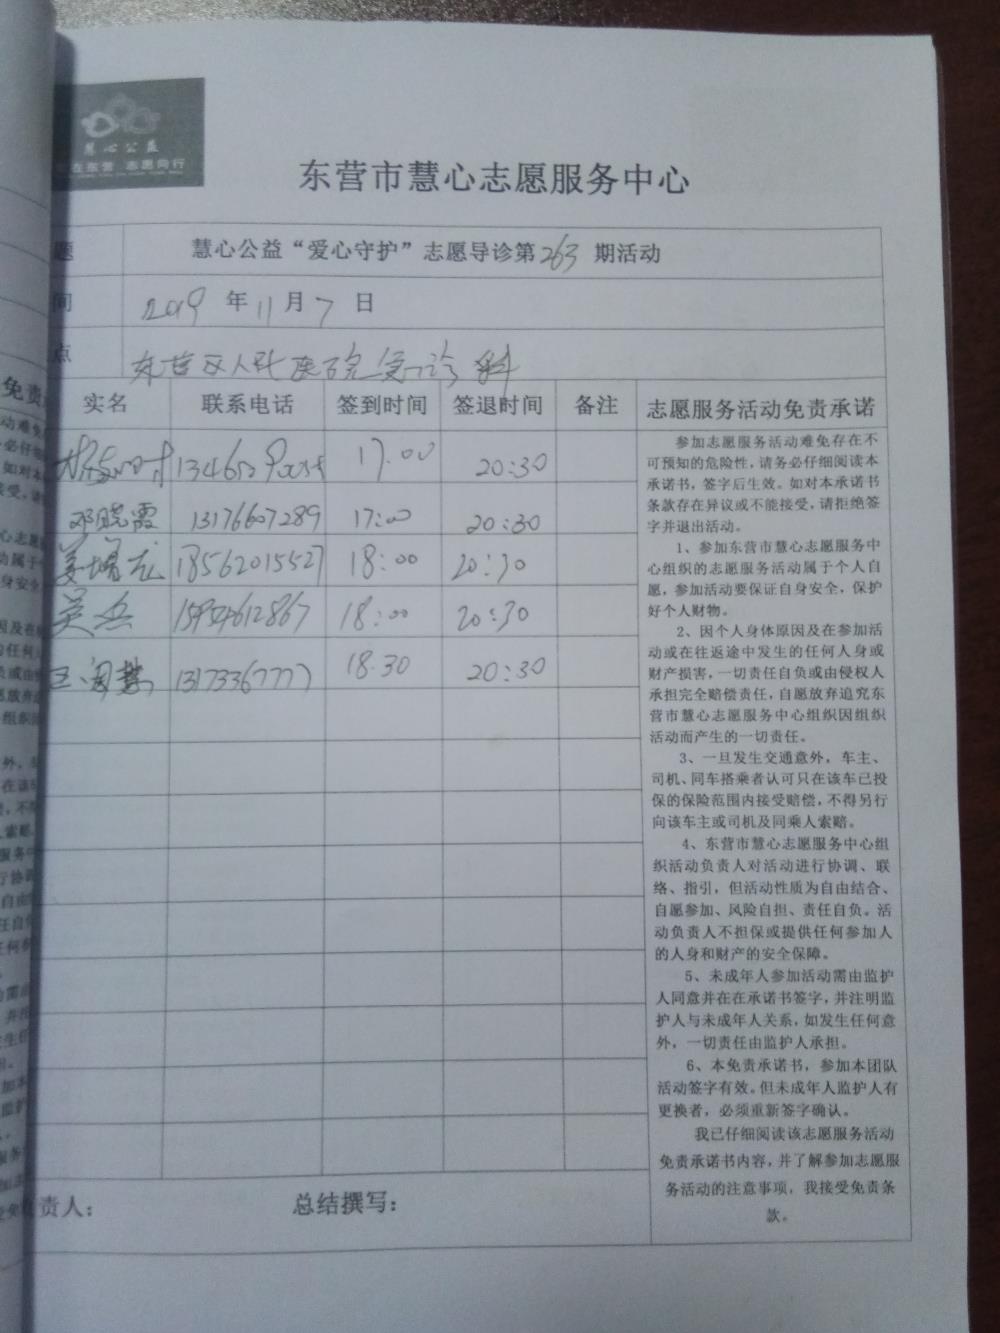 慧心公益
在东营 志愿同行
东营市慧心志愿服务中心
题 慧心公益“爱心守护”志愿导诊第263期活动
间 2019年11月7日
点 东营区人民医院急诊科
实名 联系电话 签到时间 签退时间 备注 志愿服务活动免责承诺
17:00 20:30
邓晓霞 13176607289 17:00 20:30
姜增龙 18562015527 18:00 20:30
吴杰 15954612867 18:00 20:30
13173367777 18:30 20:30
参加志愿服务活动难免存在不
可预知的危险性，请务必仔细阅读本
承诺书，签字后生效。如对本承诺书
条款存在异议或不能接受，请拒绝签
字并退出活动。
1、参加东营市慧心志愿服务中
心组织的志愿服务活动属于个人自
愿，参加活动要保证自身安全，保护
好个人财物。
2、因个人身体原因及在参加活
动或在往返途中发生的任何人身或
财产损害，一切责任自负或由侵权人
承担完全赔偿责任，自愿放弃追究东
营市慧心志愿服务中心组织因组织
活动而产生的一切责任。
3、一旦发生交通意外，车主、
司机、同车搭乘者认可只在该车已投
保的保险范围内接受赔偿，不得另行
向该车主或司机及同乘人索赔。
4、东营市慧心志愿服务中心组
织活动负责人对活动进行协调、联
络、指引，但活动性质为自由结合、
自愿参加、风险自担、责任自负。活
动负责人不担保或提供任何参加人
的人身和财产的安全保障。
5、未成年人参加活动需由监护
人同意并在在承诺书签字，并注明监
护人与未成年人关系，如发生任何意
外，一切责任由监护人承担。
6、本免责承诺书，参加本团队
活动签字有效。但未成年人监护人有
更换者，必须重新签字确认。
我已仔细阅读该志愿服务活动
免责承诺书内容，并了解参加志愿服
务活动的注意事项，我接受免责条
款。
责人： 总结撰写：